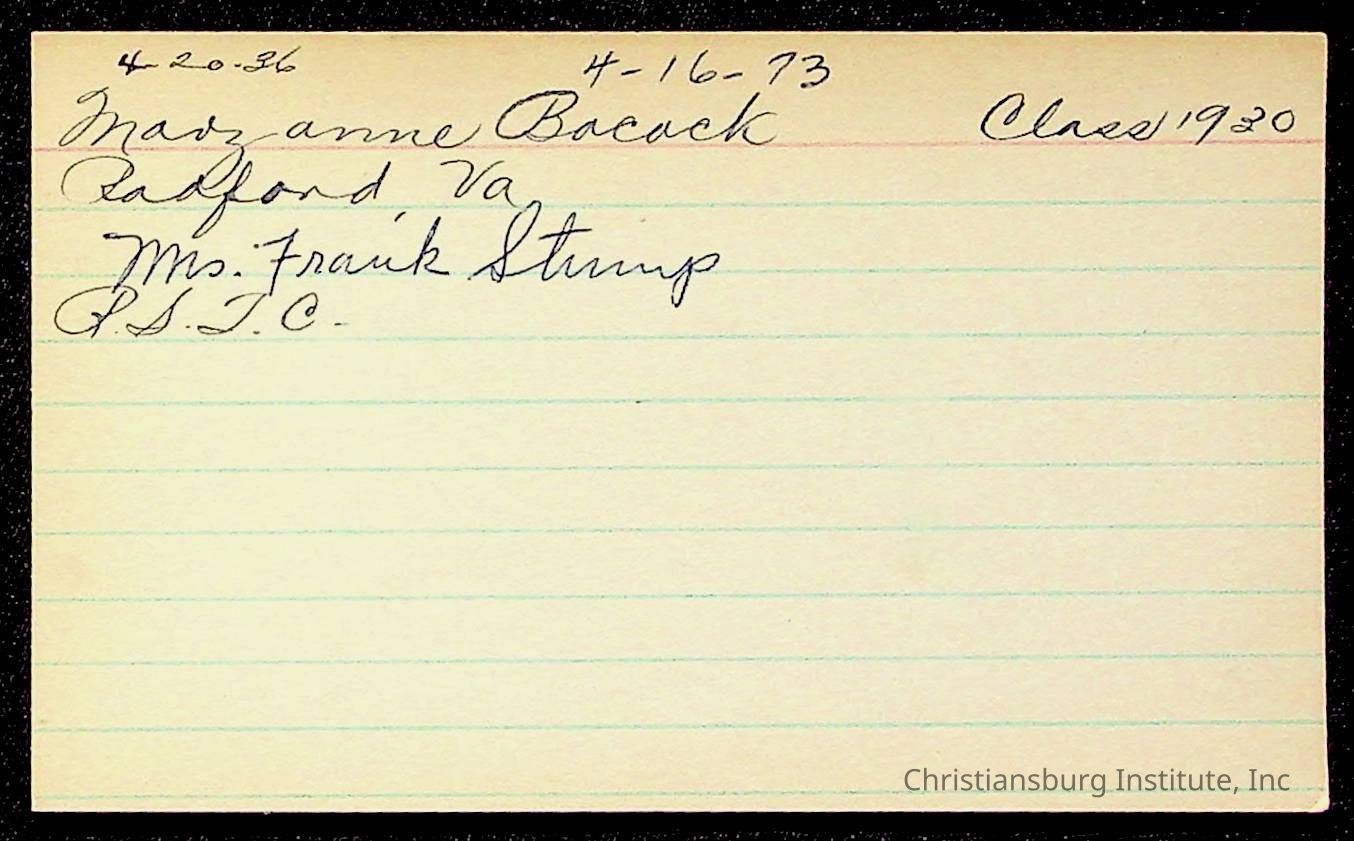 4-20-36 4-16-73
Mary anne Bocock Class 1930
Radford, Va
Mrs. Frank Stump
R.S.T.C.
Christiansburg Institute, Inc